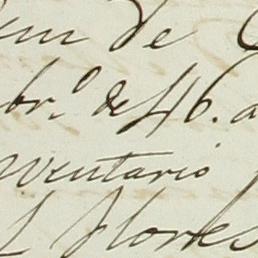 em de
br.º de 46. a
nventario
Flores